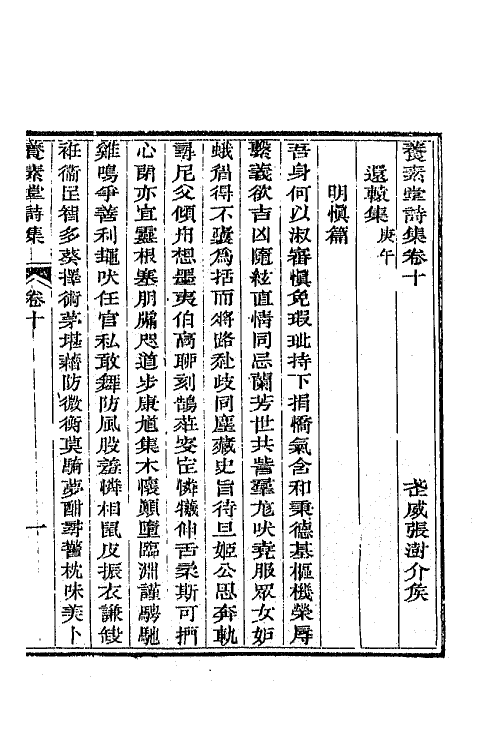 養素堂詩集卷十
武威張澍介侯
還轅集庚午
明慎篇
吾身何以淑審慎免瑕玼持下捐憍氣含和秉德基樞機榮辱
繫義欲吉凶隨絃直情同忌蘭芳世共訾羣尨吠堯服眾女妒
蛾眉得不囊為括而將路泣歧同塵藏史旨待旦姬公思奔軌
尋尼父傾舟想墨夷伯高聊刻鵠莊安憐犧伸舌柔斯可捫
心閉亦宜靈根塞朋牖咫道步康馗集木懷顛墮臨淵謹騁馳
雞鳴爭善利厖吠任官私敢舞防風股羞憐相鼠皮振衣謙
衛足多葵擇術茅堪藉防微衡莫騎夢酣尋舊枕味美卜
養素堂詩集
卷十
一